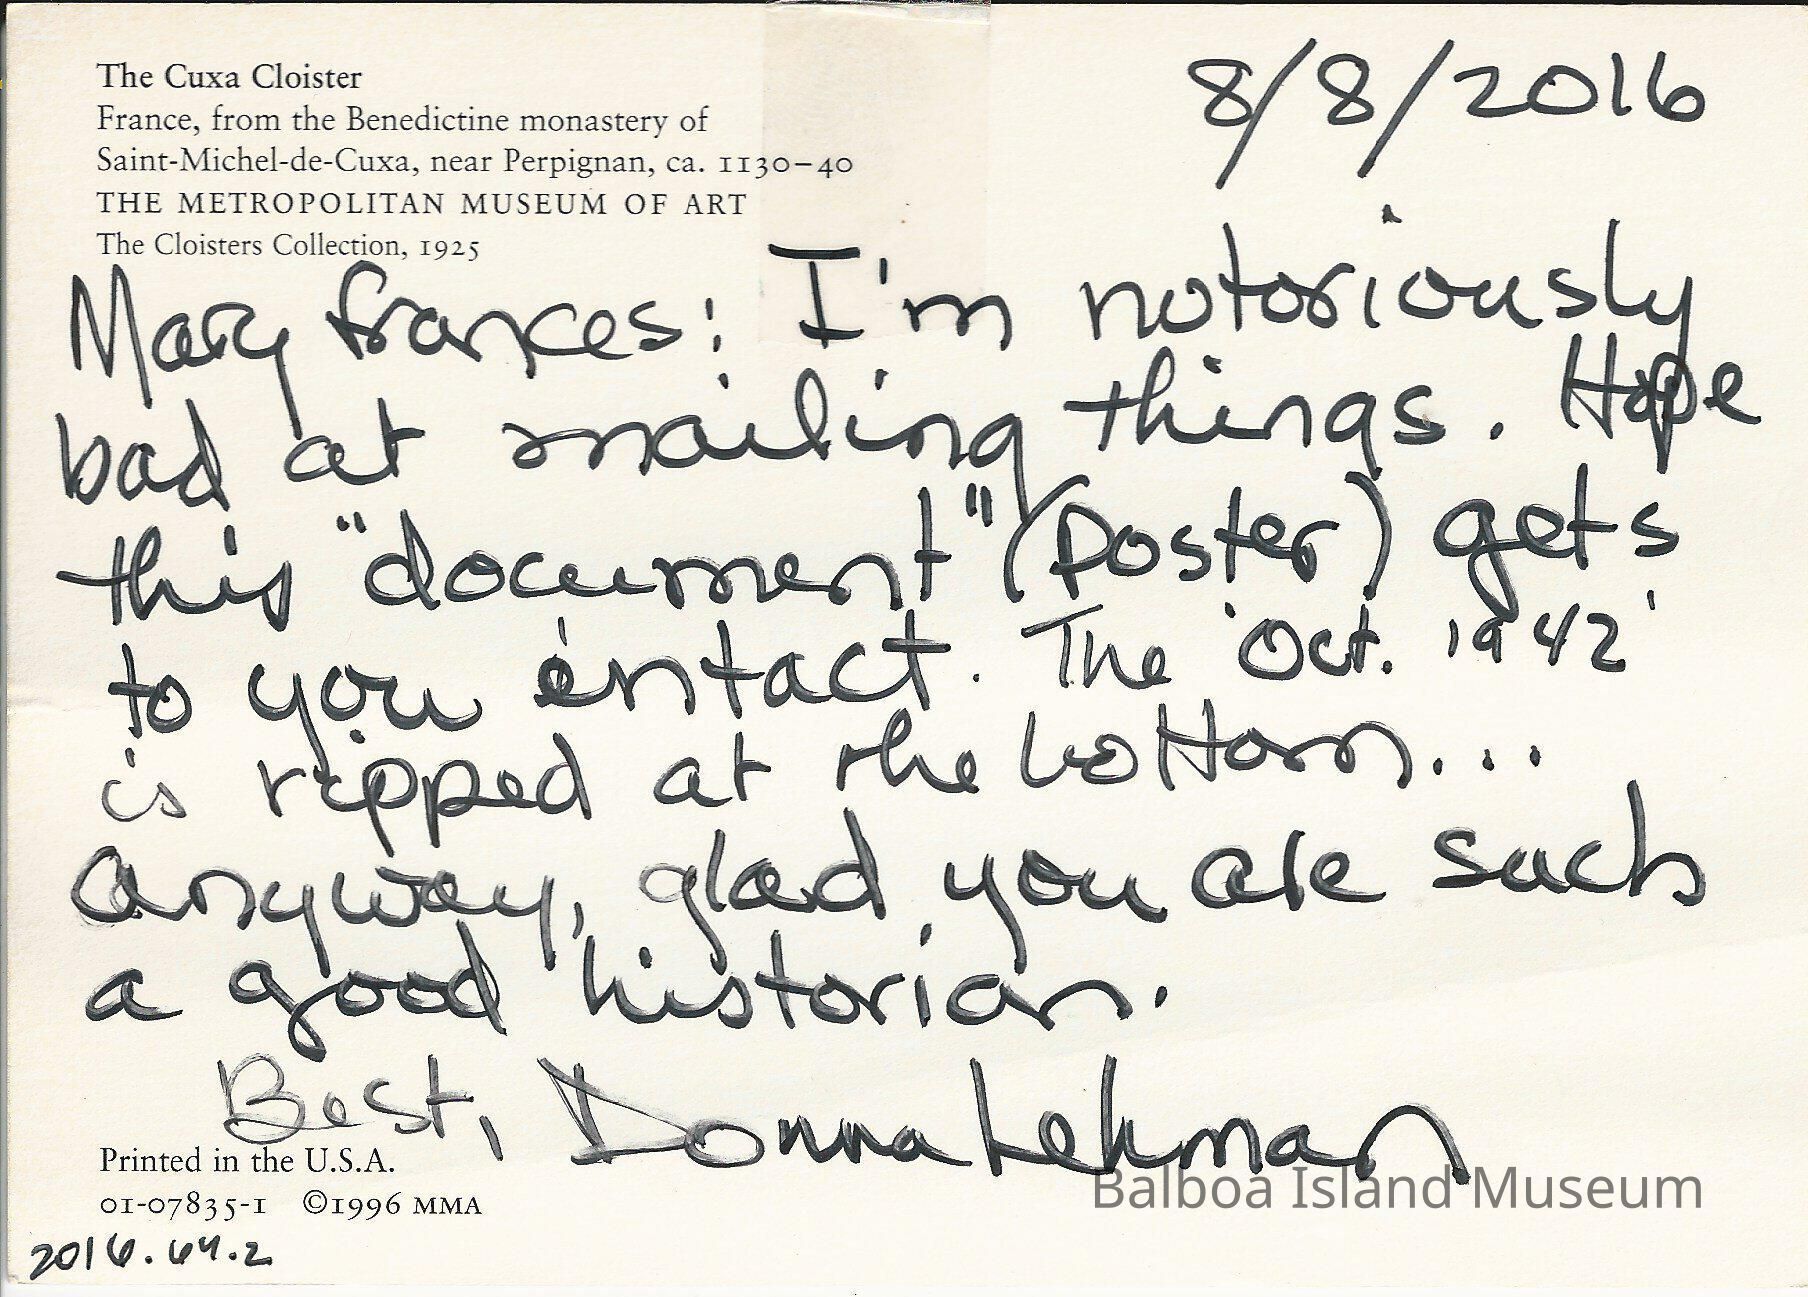 The Cuxa Cloister
France, from the Benedictine monastery of
Saint-Michel-de-Cuxa, near Perpignan, ca. 1130–40
THE METROPOLITAN MUSEUM OF ART
The Cloisters Collection, 1925
8/8/2016
Mary Frances: I'm notoriously
bad at mailing things. Hope
this "document" (poster) gets
to you intact. The 'Oct. 1942'
is ripped at the bottom...
Anyway, glad you are such
a good historian.
Best, Donna Lehman
Printed in the U.S.A.
01-07835-1 ©1996 MMA
2016.64.2
Balboa Island Museum